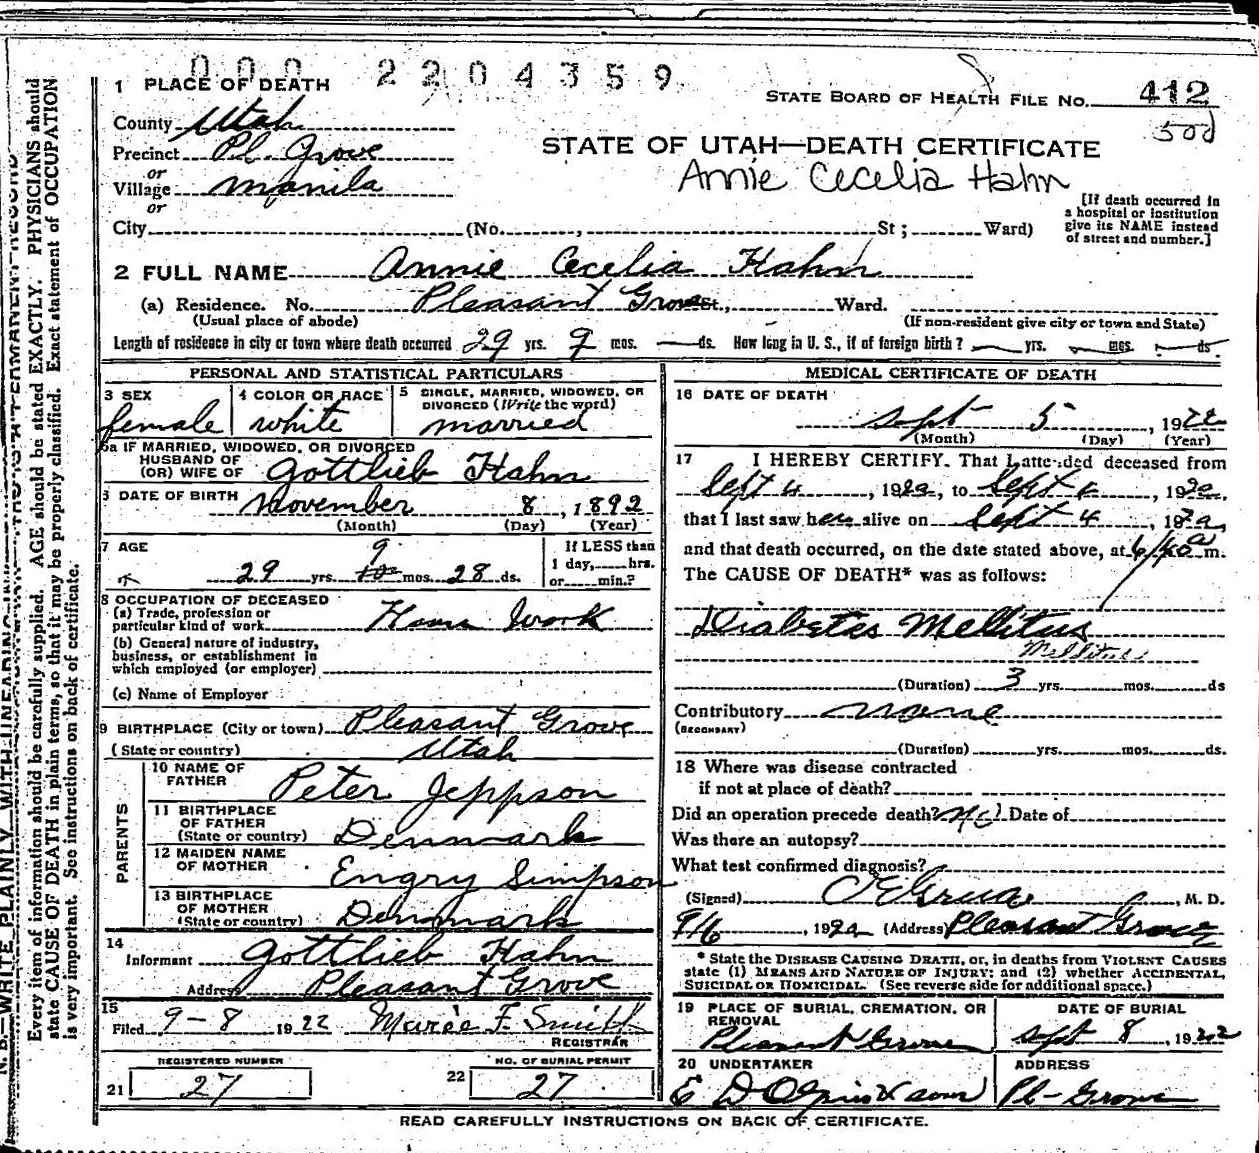 000 2204359
1 PLACE OF DEATH
STATE BOARD OF HEALTH FILE NO. 412
500
County Utah
STATE OF UTAH—DEATH CERTIFICATE
Precinct Pl. Grove
or
Annie Cecelia Hahn
Village Manila
or
[If death occurred in a hospital or institution give its NAME instead of street and number.]
City (No. , St ; Ward)
2 FULL NAME Annie Cecelia Hahn
(a) Residence. No. Pleasant Grove St., Ward.
(Usual place of abode) (If non-resident give city or town and State)
Length of residence in city or town where death occurred 29 yrs. 9 mos. — ds. How long in U. S., if of foreign birth? — yrs. — mos. — ds.
PERSONAL AND STATISTICAL PARTICULARS
3 SEX
female
4 COLOR OR RACE
white
5 SINGLE, MARRIED, WIDOWED, OR
DIVORCED (Write the word)
married
5a IF MARRIED, WIDOWED, OR DIVORCED
HUSBAND OF
(OR) WIFE OF Gottlieb Hahn
6 DATE OF BIRTH November 8, 1892
(Month) (Day) (Year)
7 AGE
29 yrs. 10 9 mos. 28 ds.
If LESS than
1 day, hrs.
or min.?
8 OCCUPATION OF DECEASED
(a) Trade, profession or
particular kind of work House Work
(b) General nature of industry,
business, or establishment in
which employed (or employer)
(c) Name of Employer
9 BIRTHPLACE (City or town) Pleasant Grove
(State or country) Utah
PARENTS
10 NAME OF
FATHER Peter Jeppson
11 BIRTHPLACE
OF FATHER
(State or country) Denmark
12 MAIDEN NAME
OF MOTHER Engry Simpson
13 BIRTHPLACE
OF MOTHER
(State or country) Denmark
14
Informant Gottlieb Hahn
Address Pleasant Grove
15
Filed 9-8 1922 Marie F. Smith
REGISTRAR
REGISTERED NUMBER
21 27
NO. OF BURIAL PERMIT
22 27
MEDICAL CERTIFICATE OF DEATH
16 DATE OF DEATH
Sept 5, 1922
(Month) (Day) (Year)
17 I HEREBY CERTIFY. That I attended deceased from
Sept 4, 1922, to Sept 4, 1922,
that I last saw her alive on Sept 4, 1922,
and that death occurred, on the date stated above, at 6/40 a m.
The CAUSE OF DEATH* was as follows:
Diabetes Mellitus
Mellitus
(Duration) 3 yrs. mos. ds
Contributory none
(SECONDARY)
(Duration) yrs. mos. ds.
18 Where was disease contracted
if not at place of death?
Did an operation precede death? No Date of
Was there an autopsy?
What test confirmed diagnosis?
(Signed) , M. D.
9/6, 1922 (Address) Pleasant Grove
* State the DISEASE CAUSING DEATH, or, in deaths from VIOLENT CAUSES
state (1) MEANS AND NATURE OF INJURY; and (2) whether ACCIDENTAL,
SUICIDAL OR HOMICIDAL. (See reverse side for additional space.)
19 PLACE OF BURIAL, CREMATION, OR
REMOVAL
Pleasant Grove
DATE OF BURIAL
Sept 8, 1922
20 UNDERTAKER
E D Olpin & sons
ADDRESS
Pl-Grove
READ CAREFULLY INSTRUCTIONS ON BACK OF CERTIFICATE.
Every item of information should be carefully supplied. AGE should be stated EXACTLY. PHYSICIANS should
state CAUSE OF DEATH in plain terms, so that it may be properly classified. Exact statement of OCCUPATION
is very important. See instructions on back of certificate.
N. B.—WRITE PLAINLY WITH UNFADING